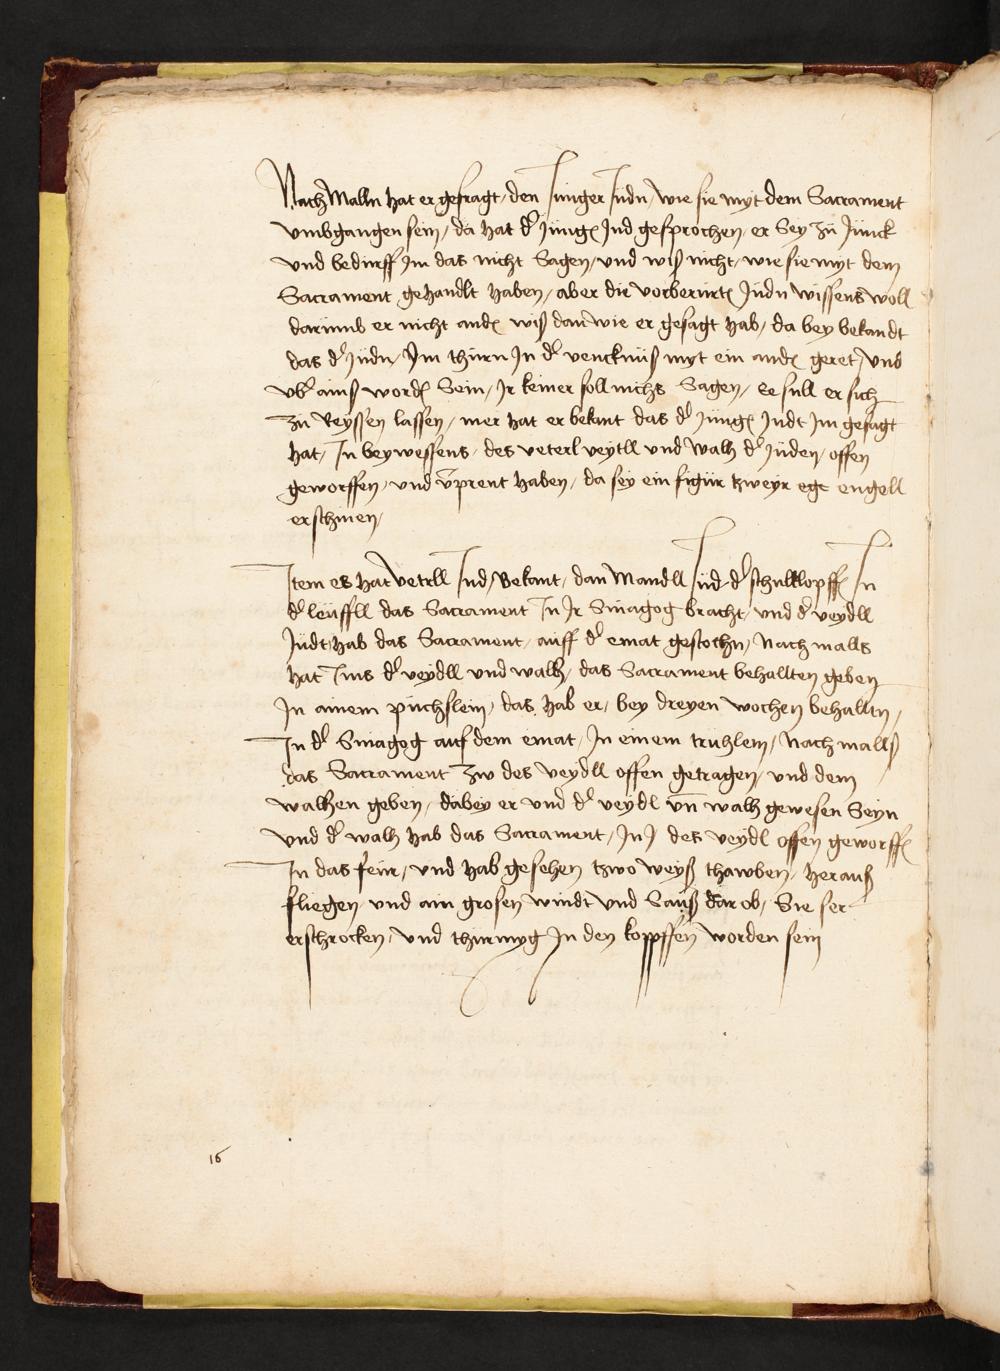 Nach Malln hat er gefragt, den Junger Judn, wie sie myt dem Sacrament
vmbgangen sein, da hat dʾ Jungʾ Jud gesprochen, er Sey zu Junck
vnd bedurff Jm das nicht Sagen, vnd wiß nicht, wie sie myt dem
Sacrament gehandlt haben, aber die vorberurtʾ Judn wissens woll
darumb er nicht andʾ wiß dan wie er gesagt hab, da bey bekandt
das dʾ Judn, Jm thurn Jn dʾ vencknuß myt ein andʾ geret, vnd
vbʾ ainß wordʾ Sein, Jr keiner soll nichs Sagen, Ee sull er sich
zu Reyssen lassen, mer hat er bekant das dʾ Jungʾ Judt Jm gesagt
hat, Jn beywessens, des veterl veytll vnd walh dʾ Juden, offen
geworffen, vnd vprent haben, da sey ein figur tzweyr engell
erschinen,
Item es hat vetterll Jud, Bekant, dan Mandll Jud dʾ schulklopffʾ Jn
dʾ leuffll das Sacrament Jn Jr Sinagog bracht, vnd dʾ veydll
Judt hab das Sacrament, auff dʾ emat gestochn, Nach malls
hat Jms dʾ veydll vnd walh, das Sacrament behallten geben
Jn ainem puchslein, das hab er, bey dreyen wochen behalltn,
Jn dʾ Sinagog auf dem emat, Jn einem truhlem, Nach mallß
das Sacrament zw des veydll offen getragen, vnd dem
walhen geben, dabey er vnd dʾ veydl vn walh gewesen Seyn
vnd dʾ walh hab das Sacrament, Jn des veydl offen geworffʾ
Jn das feur, vnd hab gesehen tzwo weyß thawben, herauß
fliegen vnd ain grosen windt vnd Sauß dar ob, Sie ser
erschrocken, vnd thurmyg Jn den koppffen worden sein
16